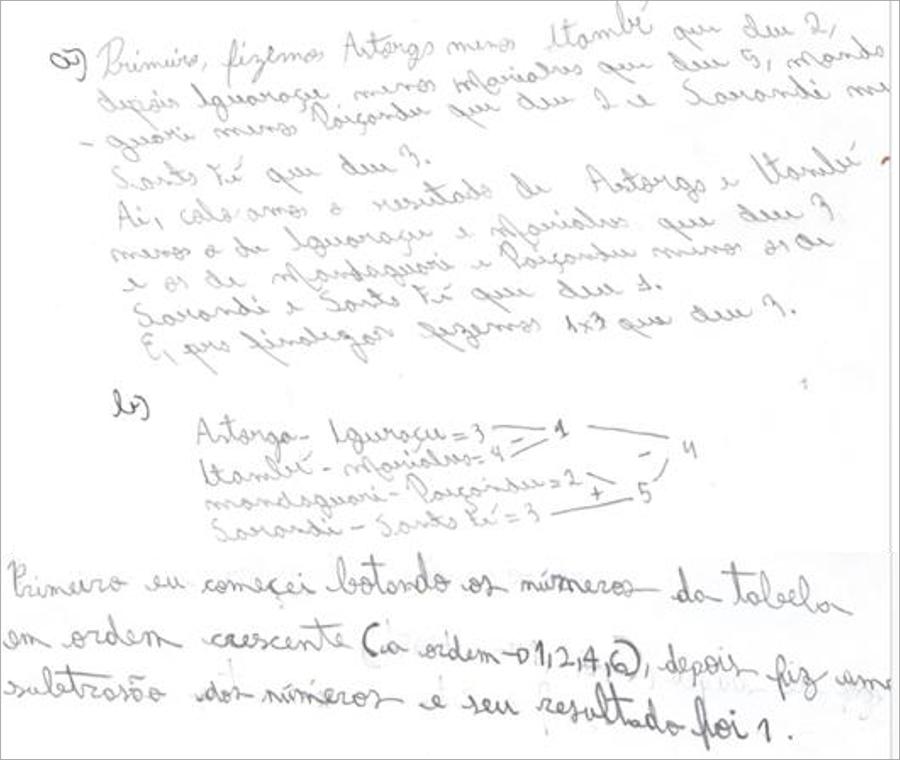 a) Primeiro, fizemos Astorga menos Itambé que deu 2,
depois Iguaraçu menos Marialva que deu 5, manda
- guari menos Paiçandu que deu 2 e Sarandi me
Santa Fé que deu 3.
Ai, colocamos o resultado de Astorga e Itambé
menos o de Iguaraçu e Marialva que deu 3
e os de Mandaguari e Paiçandu menos os de
Sarandi e Santa Fé que deu 1.
E, pra finalizar fizemos 1x3 que deu 3.
b)
Astorga - Iguraçu = 3 - 1
Itambé - Marialva = 4 - 4
mandaguari - Paiçandu = 2 + 5
Sarandi - Santa Fé = 3
Primeiro eu começei botando os números da tabela
em ordem crescente (a ordem → 1,2,4,6), depois fiz uma
subtrasão dos números e seu resultado foi 1.